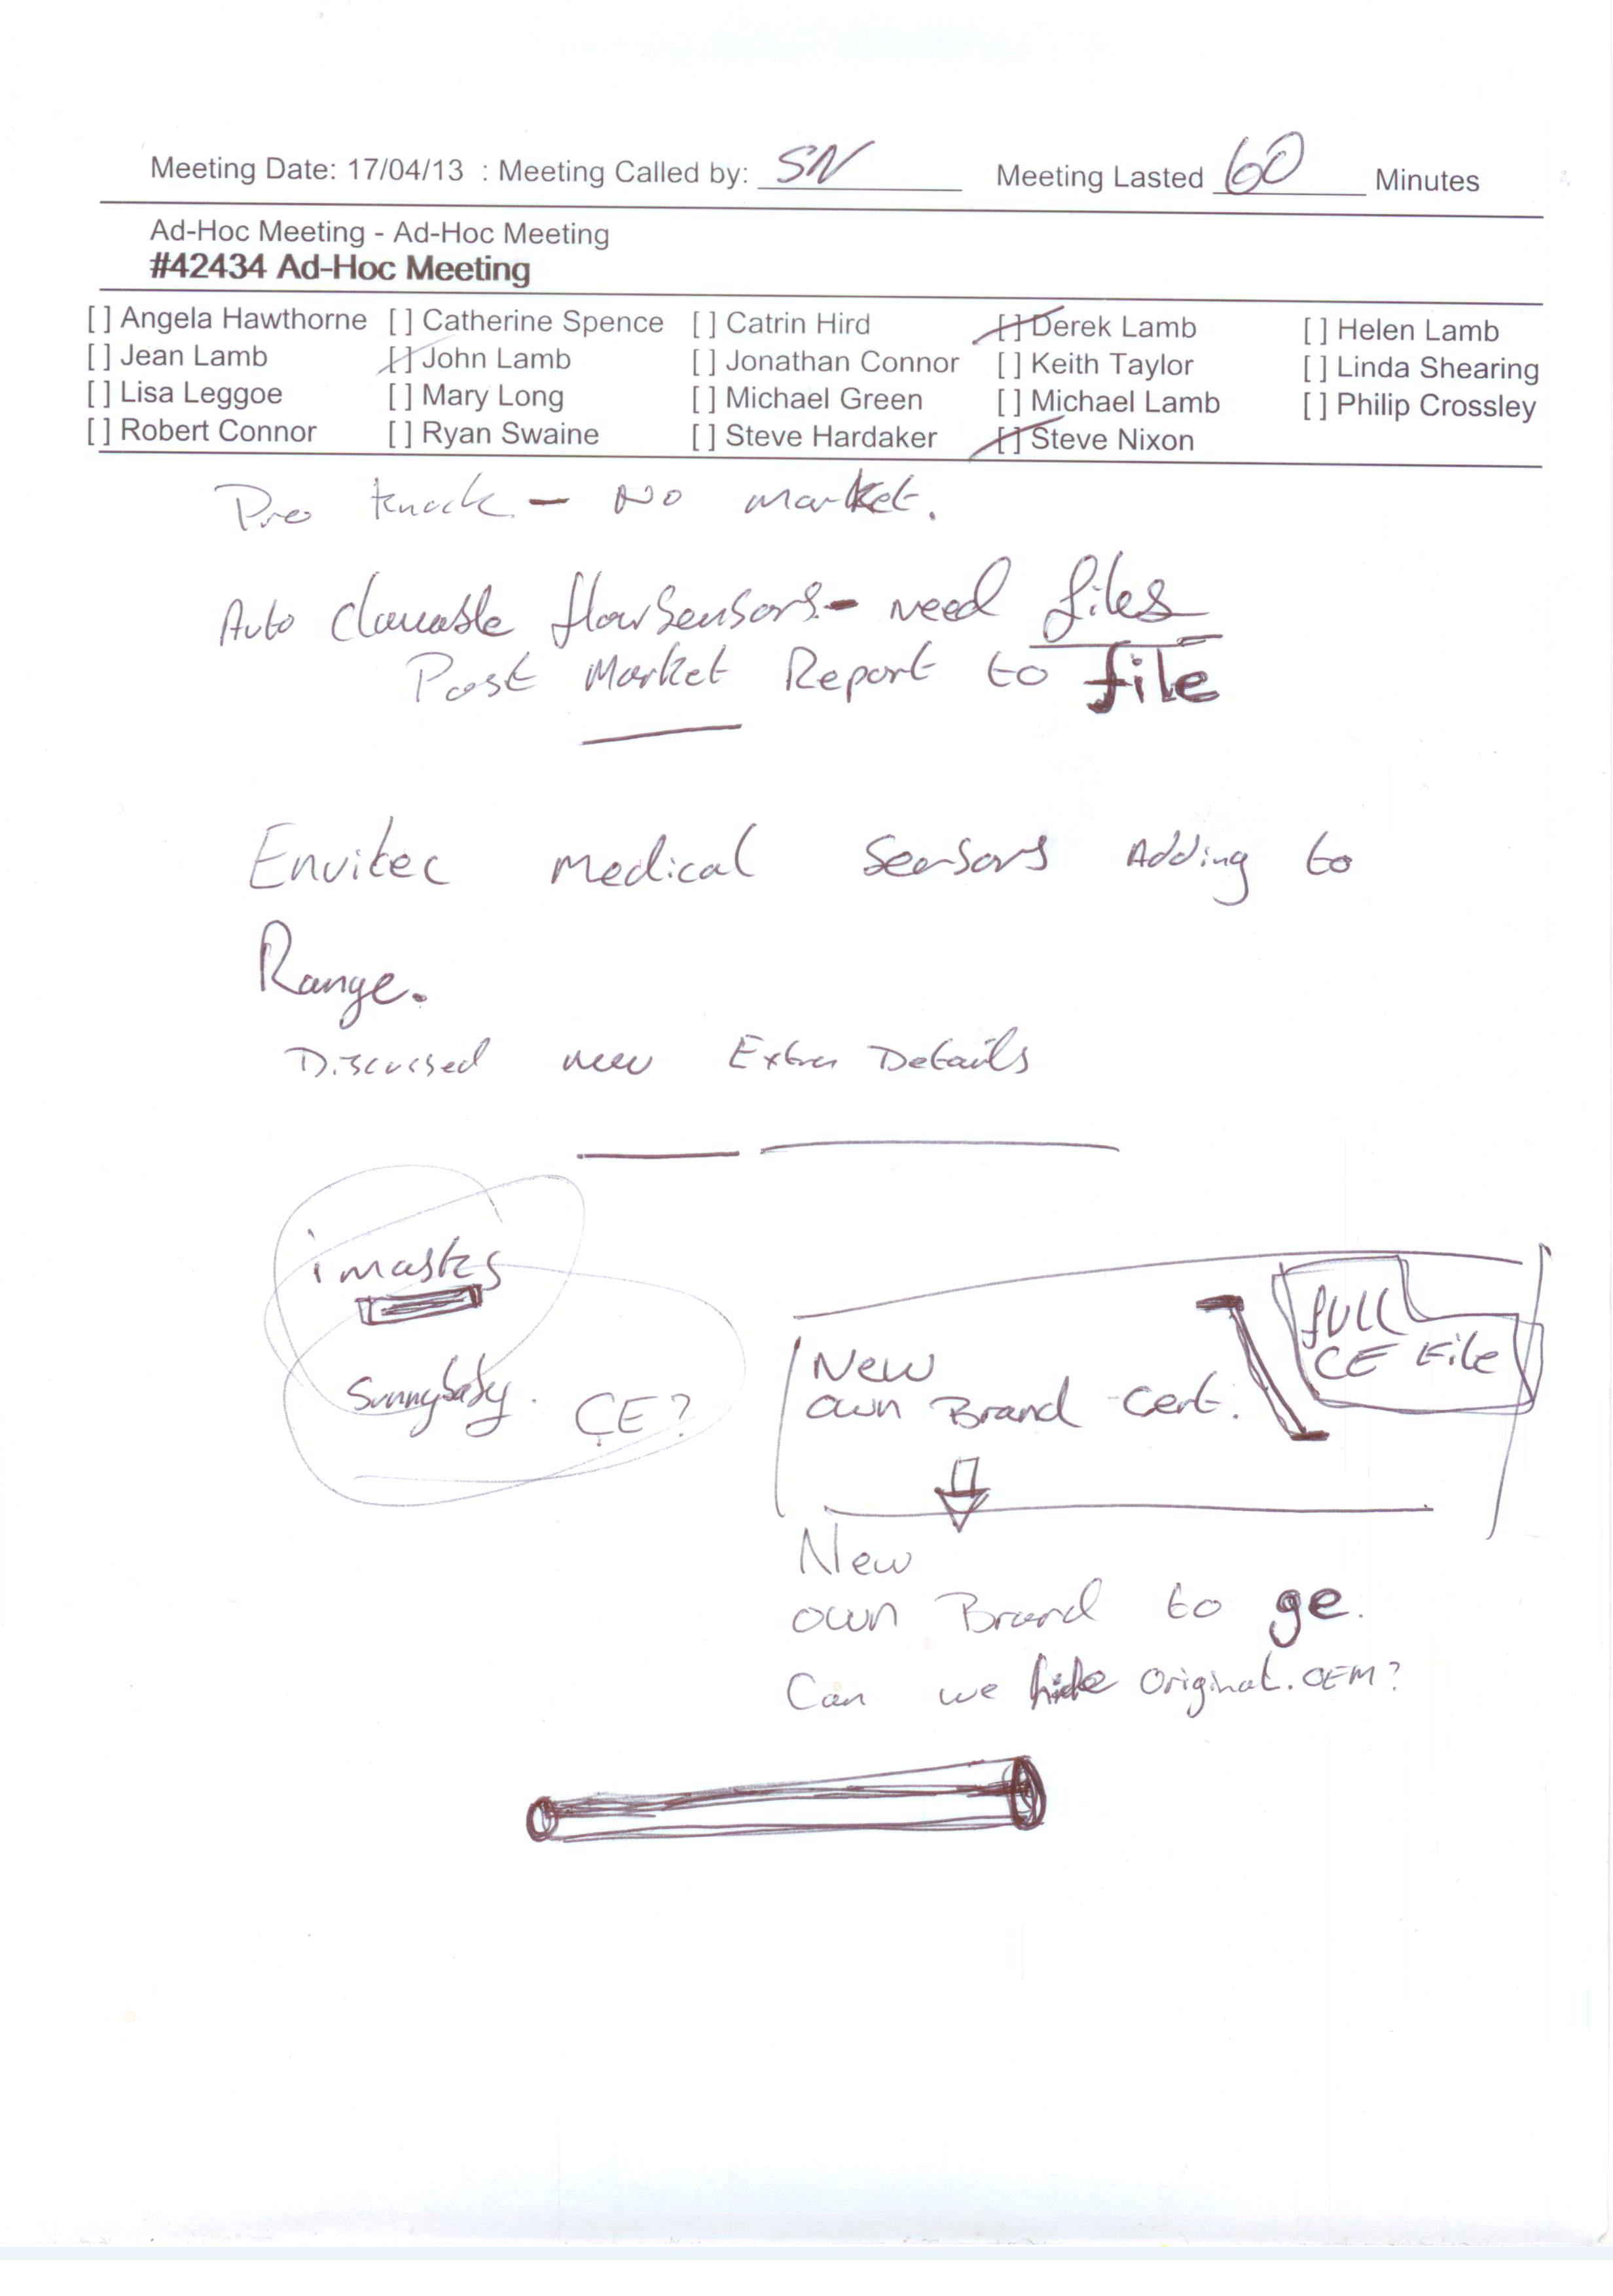 Meeting Date: 17/04/13 : Meeting Called by: SN Meeting Lasted 60 Minutes
Ad-Hoc Meeting - Ad-Hoc Meeting
#42434 Ad-Hoc Meeting
[ ] Angela Hawthorne [ ] Catherine Spence [ ] Catrin Hird [ ] Derek Lamb [ ] Helen Lamb
[ ] Jean Lamb [ ] John Lamb [ ] Jonathan Connor [ ] Keith Taylor [ ] Linda Shearing
[ ] Lisa Leggoe [ ] Mary Long [ ] Michael Green [ ] Michael Lamb [ ] Philip Crossley
[ ] Robert Connor [ ] Ryan Swaine [ ] Steve Hardaker [ ] Steve Nixon
- No market.
Auto flowsensors - need files
Post Market Report to file
Envitec Medical Sensors Adding to
Range.
Discussed new Extra Details
i masks
Sunnybaby. CE?
full
CE File
New
own Brand cert.
New
own Brand to ge.
Can we hide Original. OEM?